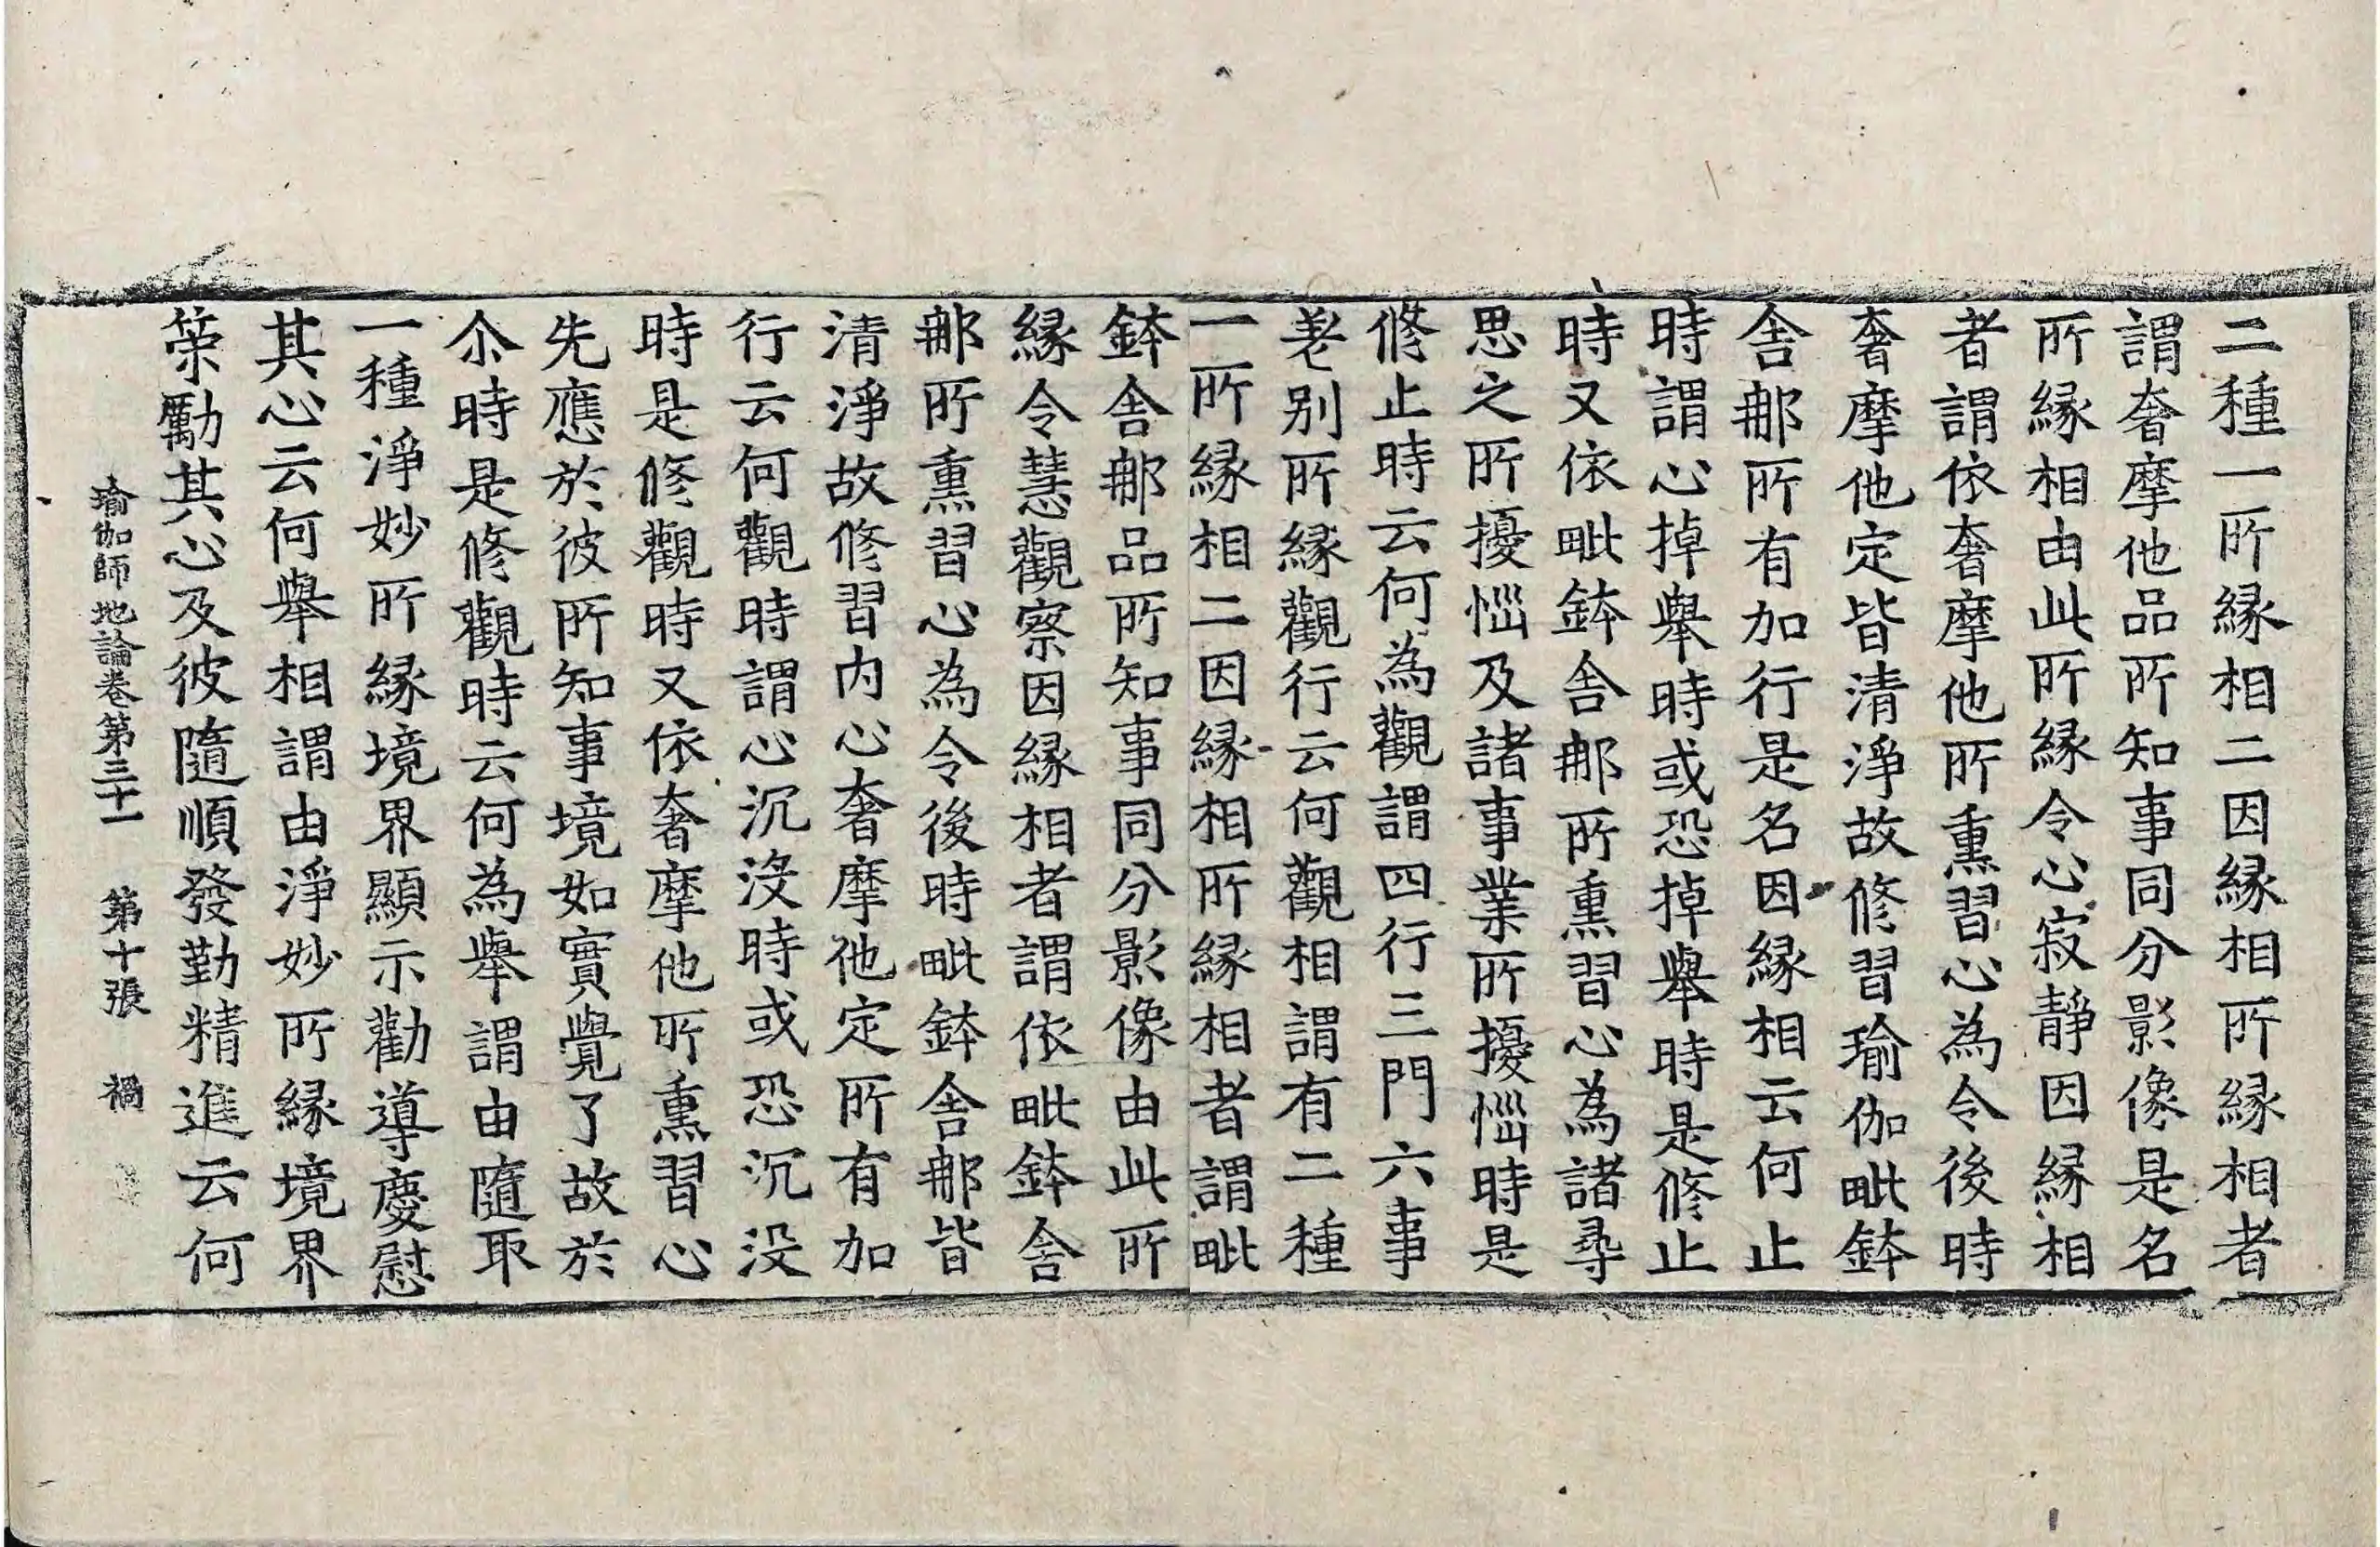 二種一所縁相二因縁相所縁相者
謂奢摩他品所知事同分影像是名
所縁相由此所縁令心寂靜因縁相
者謂依奢摩他所熏習心為令後時
奢摩他定皆清淨故修習瑜伽毗鉢
舎𨙻所有加行是名因縁相云何止
時謂心掉舉時或恐掉舉時是修止
時又依毗鉢舎𨙻所熏習心為諸尋
思之所擾惱及諸事業所擾惱時是
修止時云何為觀謂四行三門六事
差别所縁觀行云何觀相謂有二種
一所縁相二因縁相所縁相者謂毗
鉢舎𨙻品所知事同分影像由此所
縁令慧觀察因縁相者謂依毗鉢舎
𨙻所熏習心為令後時毗鉢舎𨙻皆
清淨故修習内心奢摩他定所有加
行云何觀時謂心沉没時或恐沉没
時是修觀時又依奢摩他所熏習心
先應於彼所知事境如實覺了故於
尒時是修觀時云何為舉謂由隨取
一種淨妙所縁境界顯示勸導慶慰
其心云何舉相謂由淨妙所縁境界
策勵其心及彼隨順發勤精進云何
瑜伽師地論卷第三十一 第十張 禍